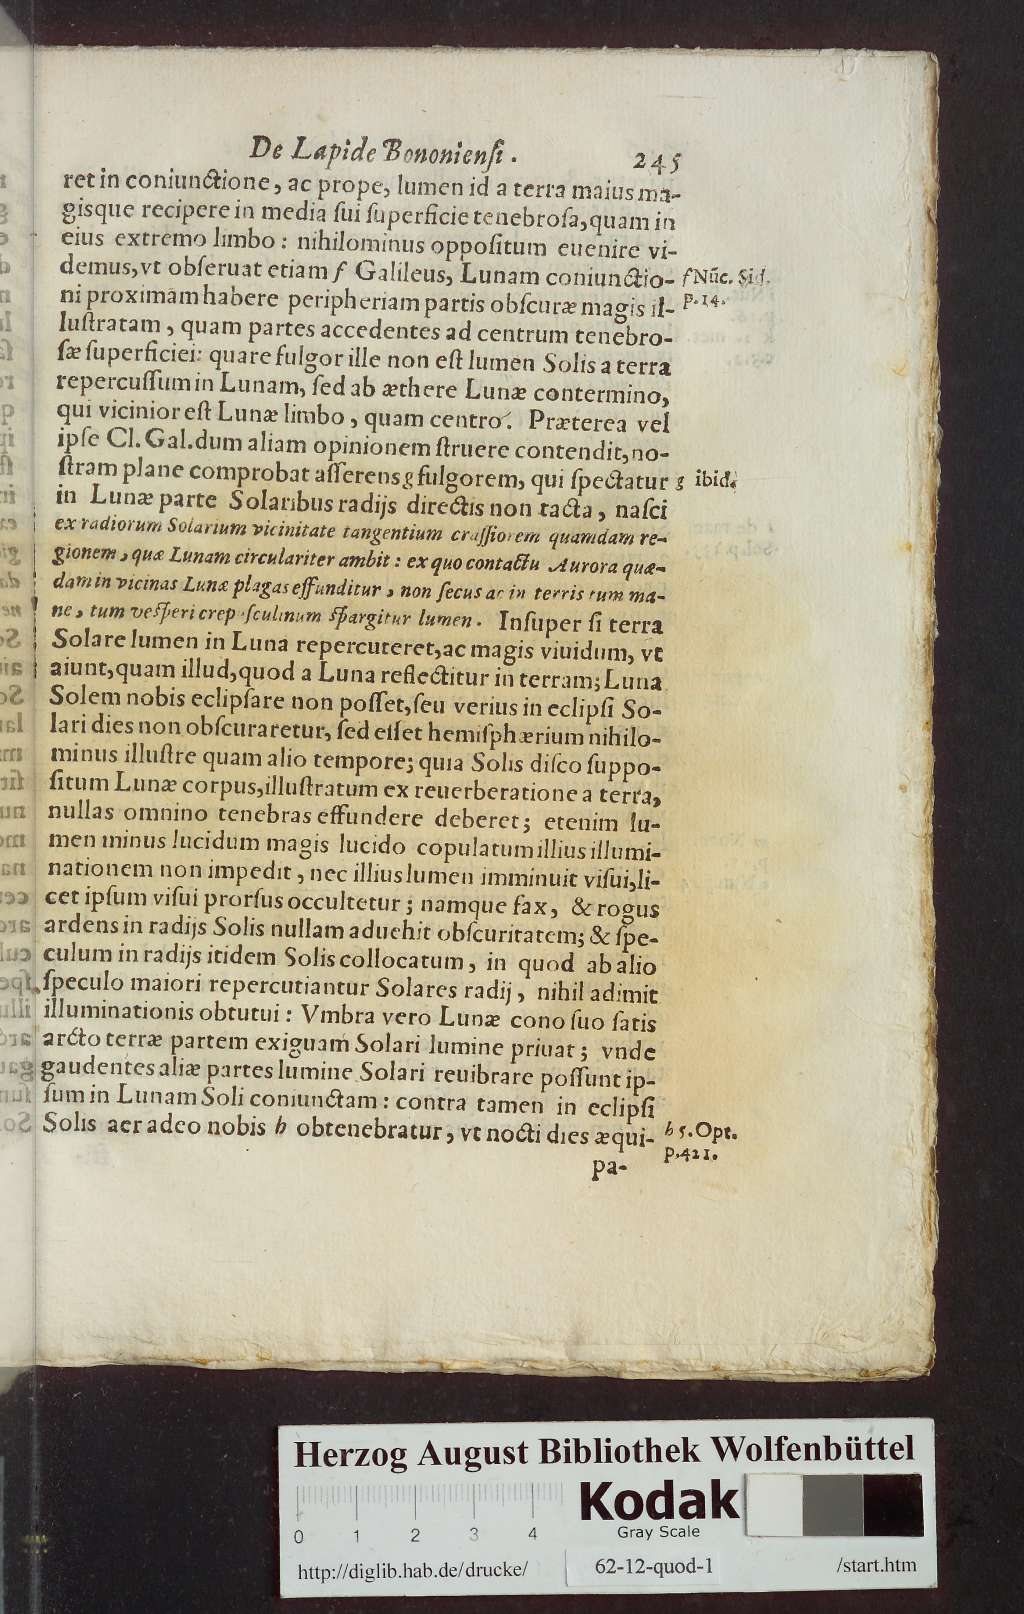 De Lapide Bononiensi. 245
ret in coniunctione, ac prope, lumen id a terra maius ma-
gisque recipere in media sui superficie tenebrosa, quam in
eius extremo limbo: nihilominus oppositum euenire vi-
demus, vt obseruat etiam f Galileus, Lunam coniunctio-
f Nũc. Sid.
p. 14.
ni proximam habere peripheriam partis obscuræ magis il-
lustratam, quam partes accedentes ad centrum tenebro-
sæ superficiei: quare fulgor ille non est lumen Solis a terra
repercussum in Lunam, sed ab æthere Lunæ contermino,
qui vicinior est Lunæ limbo, quam centro. Præterea vel
ipse Cl. Gal. dum aliam opinionem struere contendit, no-
stram plane comprobat asserens g fulgorem, qui spectatur
g ibid.
in Lunæ parte Solaribus radijs directis non tacta, nasci
ex radiorum Solarium vicinitate tangentium crassiorem quamdam re-
gionem, quæ Lunam circulariter ambit: ex quo contactu Aurora quæ-
dam in vicinas Lunæ plagas effunditur, non secus ac in terris tum ma-
ne, tum vesperi crepusculinum spargitur lumen. Insuper si terra
Solare lumen in Luna repercuteret, ac magis viuidum, vt
aiunt, quam illud, quod a Luna reflectitur in terram; Luna
Solem nobis eclipsare non posset, seu verius in eclipsi So-
lari dies non obscuraretur, sed esset hemisphærium nihilo-
minus illustre quam alio tempore; quia Solis disco suppo-
situm Lunæ corpus, illustratum ex reuerberatione a terra,
nullas omnino tenebras effundere deberet; etenim lu-
men minus lucidum magis lucido copulatum illius illumi-
nationem non impedit, nec illius lumen imminuit visui, li-
cet ipsum visui prorsus occultetur; namque fax, & rogus
ardens in radijs Solis nullam aduehit obscuritatem; & spe-
culum in radijs itidem Solis collocatum, in quod ab alio
speculo maiori repercutiantur Solares radij, nihil adimit
illuminationis obtutui: Vmbra vero Lunæ cono suo satis
arcto terræ partem exiguam Solari lumine priuat; vnde
gaudentes aliæ partes lumine Solari reuibrare possunt ip-
sum in Lunam Soli coniunctam: contra tamen in eclipsi
Solis aer adeo nobis h obtenebratur, vt nocti dies æqui-
h 5. Opt.
p. 421.
pa-
Herzog August Bibliothek Wolfenbüttel
Kodak
Gray Scale
0 1 2 3 4
http://diglib.hab.de/drucke/ 62-12-quod-1 /start.htm